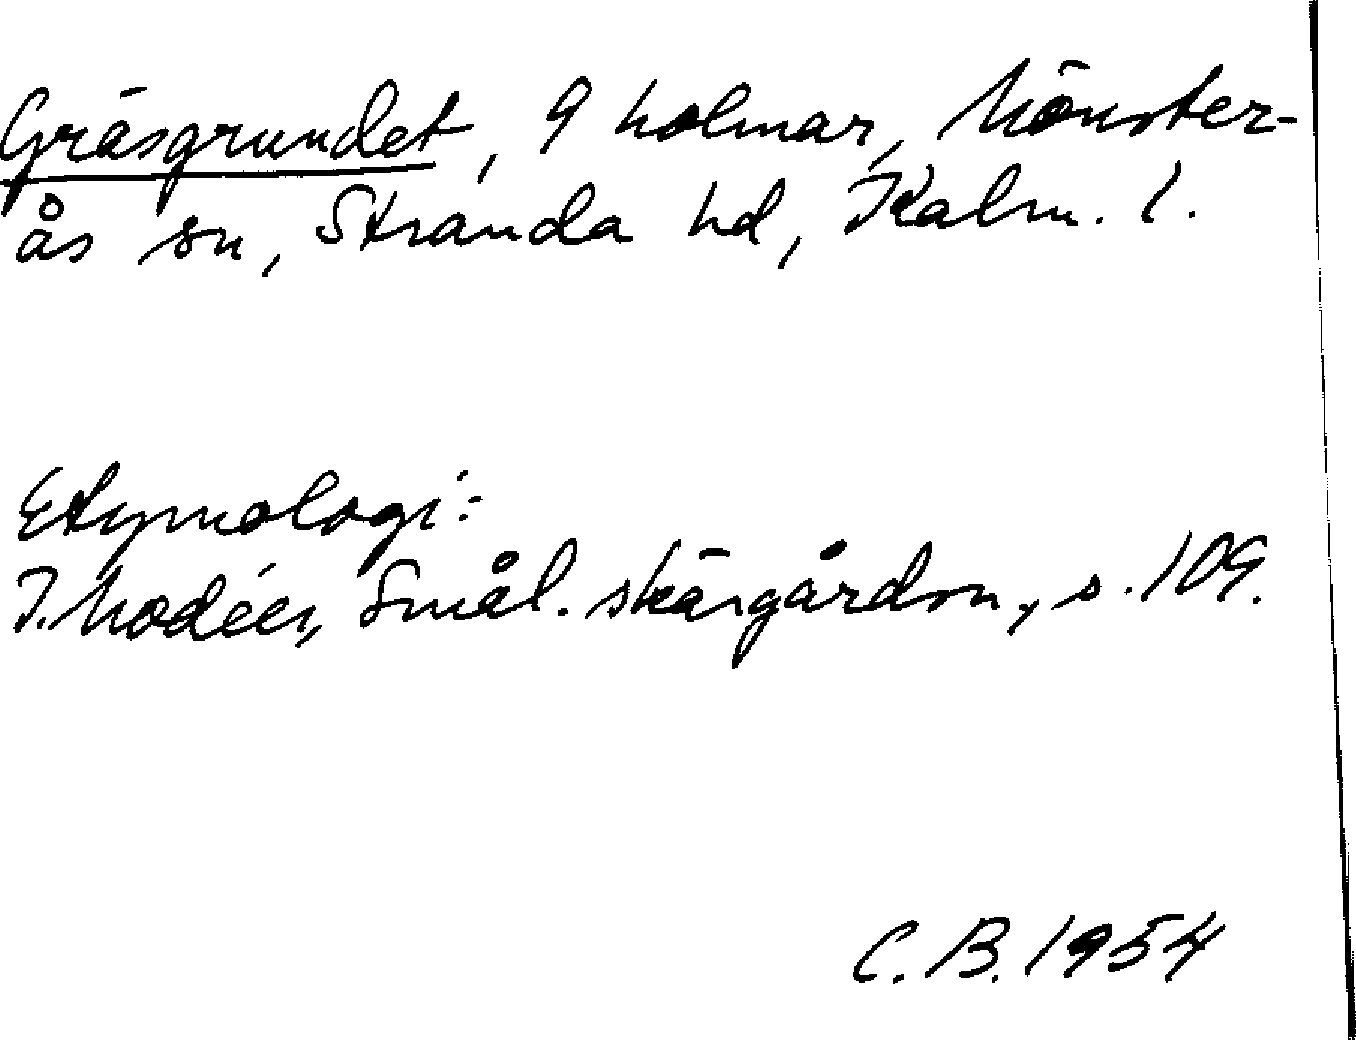 Gräsgrundet, 9 holmar, Mönster-
ås sn, Stranda hd, Kalm. l.
Etymologi:
I. Modéer, Smål. skärgårdsn., s. 109.
C. B. 1954